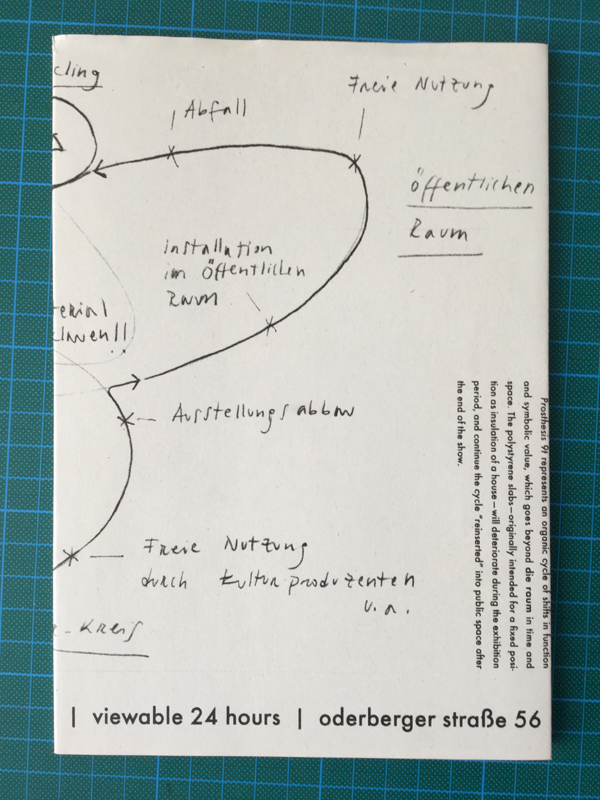 cling
Abfall
Freie Nutzung
öffentlichen
Raum
installation
im öffentlichen
Raum
terial
Ausstellungsabbau
Freie Nutzung
durch Kulturproduzenten
u.a.
- Kreis
Prosthesis 91 represents an organic cycle of shifts in function
and symbolic value, which goes beyond die raum in time and
space. The polystyrene slabs—originally intended for a fixed posi-
tion as insulation of a house—will deteriorate during the exhibition
period, and continue the cycle “reinserted” into public space after
the end of the show.
| viewable 24 hours | oderberger straße 56